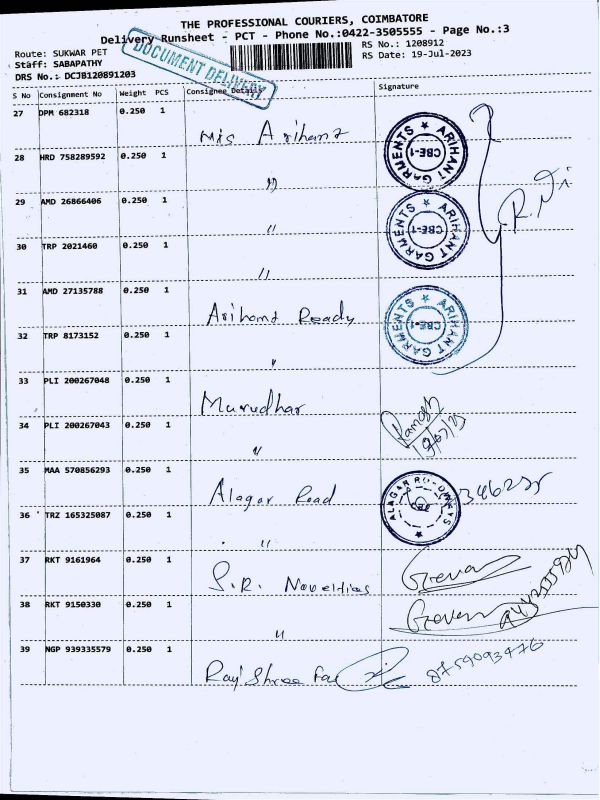 THE PROFESSIONAL COURIERS, COIMBATORE
Delivery Runsheet - PCT - Phone No.:0422-3505555 - Page No.:3
Route: SUKWAR PET
RS No.: 1208912
Staff: SABAPATHY
RS Date: 19-Jul-2023
DRS No.: DCJB120891203
DOCUMENT DELIVERY
S No Consignment No Weight PCS Consignee Details Signature
27 DPM 682318 0.250 1 M/s Arihant
ARIHANT GARMENTS ★ CBE-1
28 HRD 758289592 0.250 1 "
29 AMD 26866406 0.250 1 "
ARIHANT GARMENTS ★ CBE-1
30 TRP 2021460 0.250 1 "
31 AMD 27135788 0.250 1 Arihant Ready
ARIHANT GARMENTS ★ CBE-1
32 TRP 8173152 0.250 1 "
33 PLI 200267048 0.250 1 Murudhar
34 PLI 200267043 0.250 1 "
Ramesh
19/07/23
35 MAA 570856293 0.250 1 Alagar Road
ALAGAR ROADWAYS ★
36 TRZ 165325087 0.250 1 "
37 RKT 9161964 0.250 1 S.R. Novelties
38 RKT 9150330 0.250 1 "
39 NGP 939335579 0.250 1 Raj Shree Fa
8759093476